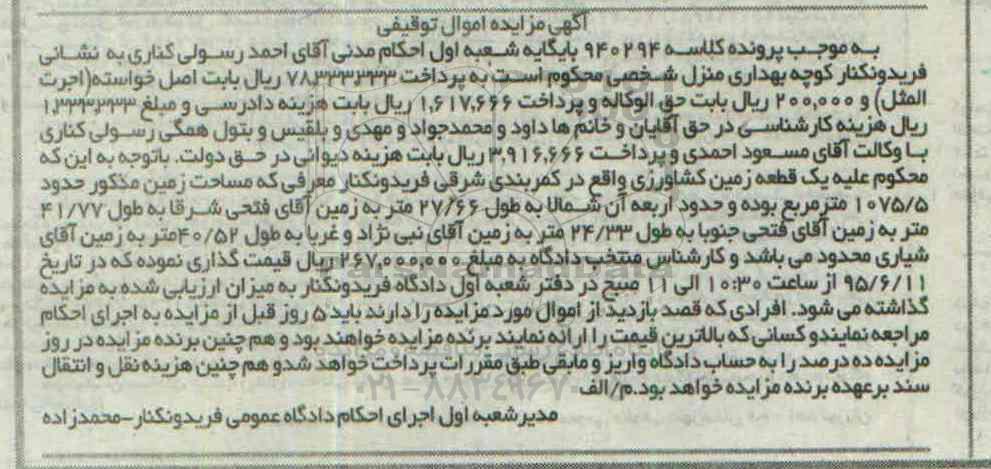 آگهی مزایده اموال توقیفی
به موجب پرونده کلاسه ۹۴۰۲۹۴ بایگانه شعبه اول احکام مدنی آقای احمد رسولی کناری به نشانی
فریدونکنار کوچه بهداری منزل شخصی محکوم است به پرداخت ۷۸,۳۳۳,۳۳۳ ریال بابت اصل خواسته(اجرت
المثل) و ۲۰۰,۰۰۰ ریال بابت حق الوکاله و پرداخت ۱,۶۱۷,۶۶۶ ریال بابت هزینه دادرسی و مبلغ ۱,۳۳۳,۳۳۳
ریال هزینه کارشناسی در حق آقایان و خانم ها داود و محمدجواد و مهدی و بلقیس و بتول همگی رسولی کناری
با وکالت آقای مسعود احمدی و پرداخت ۳,۹۱۶,۶۶۶ ریال بابت هزینه دیوانی در حق دولت. باتوجه به این که
محکوم علیه یک قطعه زمین کشاورزی واقع در کمربندی شرقی فریدونکنار معرفی که مساحت زمین مذکور حدود
۱۰۷۵/۵ مترمربع بوده و حدود اربعه آن شمالا به طول ۲۷/۶۶ متر به زمین آقای فتحی شرقا به طول ۴۱/۷۷
متر به زمین آقای فتحی جنوبا به طول ۲۴/۳۳ متر به زمین آقای نبی نژاد و غربا به طول ۴۰/۵۲متر به زمین آقای
شیاری محدود می باشد و کارشناس منتخب دادگاه به مبلغ ۲۶۷,۰۰۰,۰۰۰ ریال قیمت گذاری نموده که در تاریخ
۹۵/۶/۱۱ از ساعت ۱۰:۳۰ الی ۱۱ صبح در دفتر شعبه اول دادگاه فریدونکنار به میزان ارزیابی شده به مزایده
گذاشته می شود. افرادی که قصد بازدید از اموال مورد مزایده را دارند باید ۵ روز قبل از مزایده به اجرای احکام
مراجعه نمایندو کسانی که بالاترین قیمت را ارائه نمایند برنده مزایده خواهند بود و هم چنین برنده مزایده در روز
مزایده ده درصد را به حساب دادگاه واریز و مابقی طبق مقررات پرداخت خواهد شدو هم چنین هزینه نقل و انتقال
سند برعهده برنده مزایده خواهد بود.م/الف
۰۲۱-۸۸۳۴۹۶۷۰
مدیرشعبه اول اجرای احکام دادگاه عمومی فریدونکنار-محمدزاده